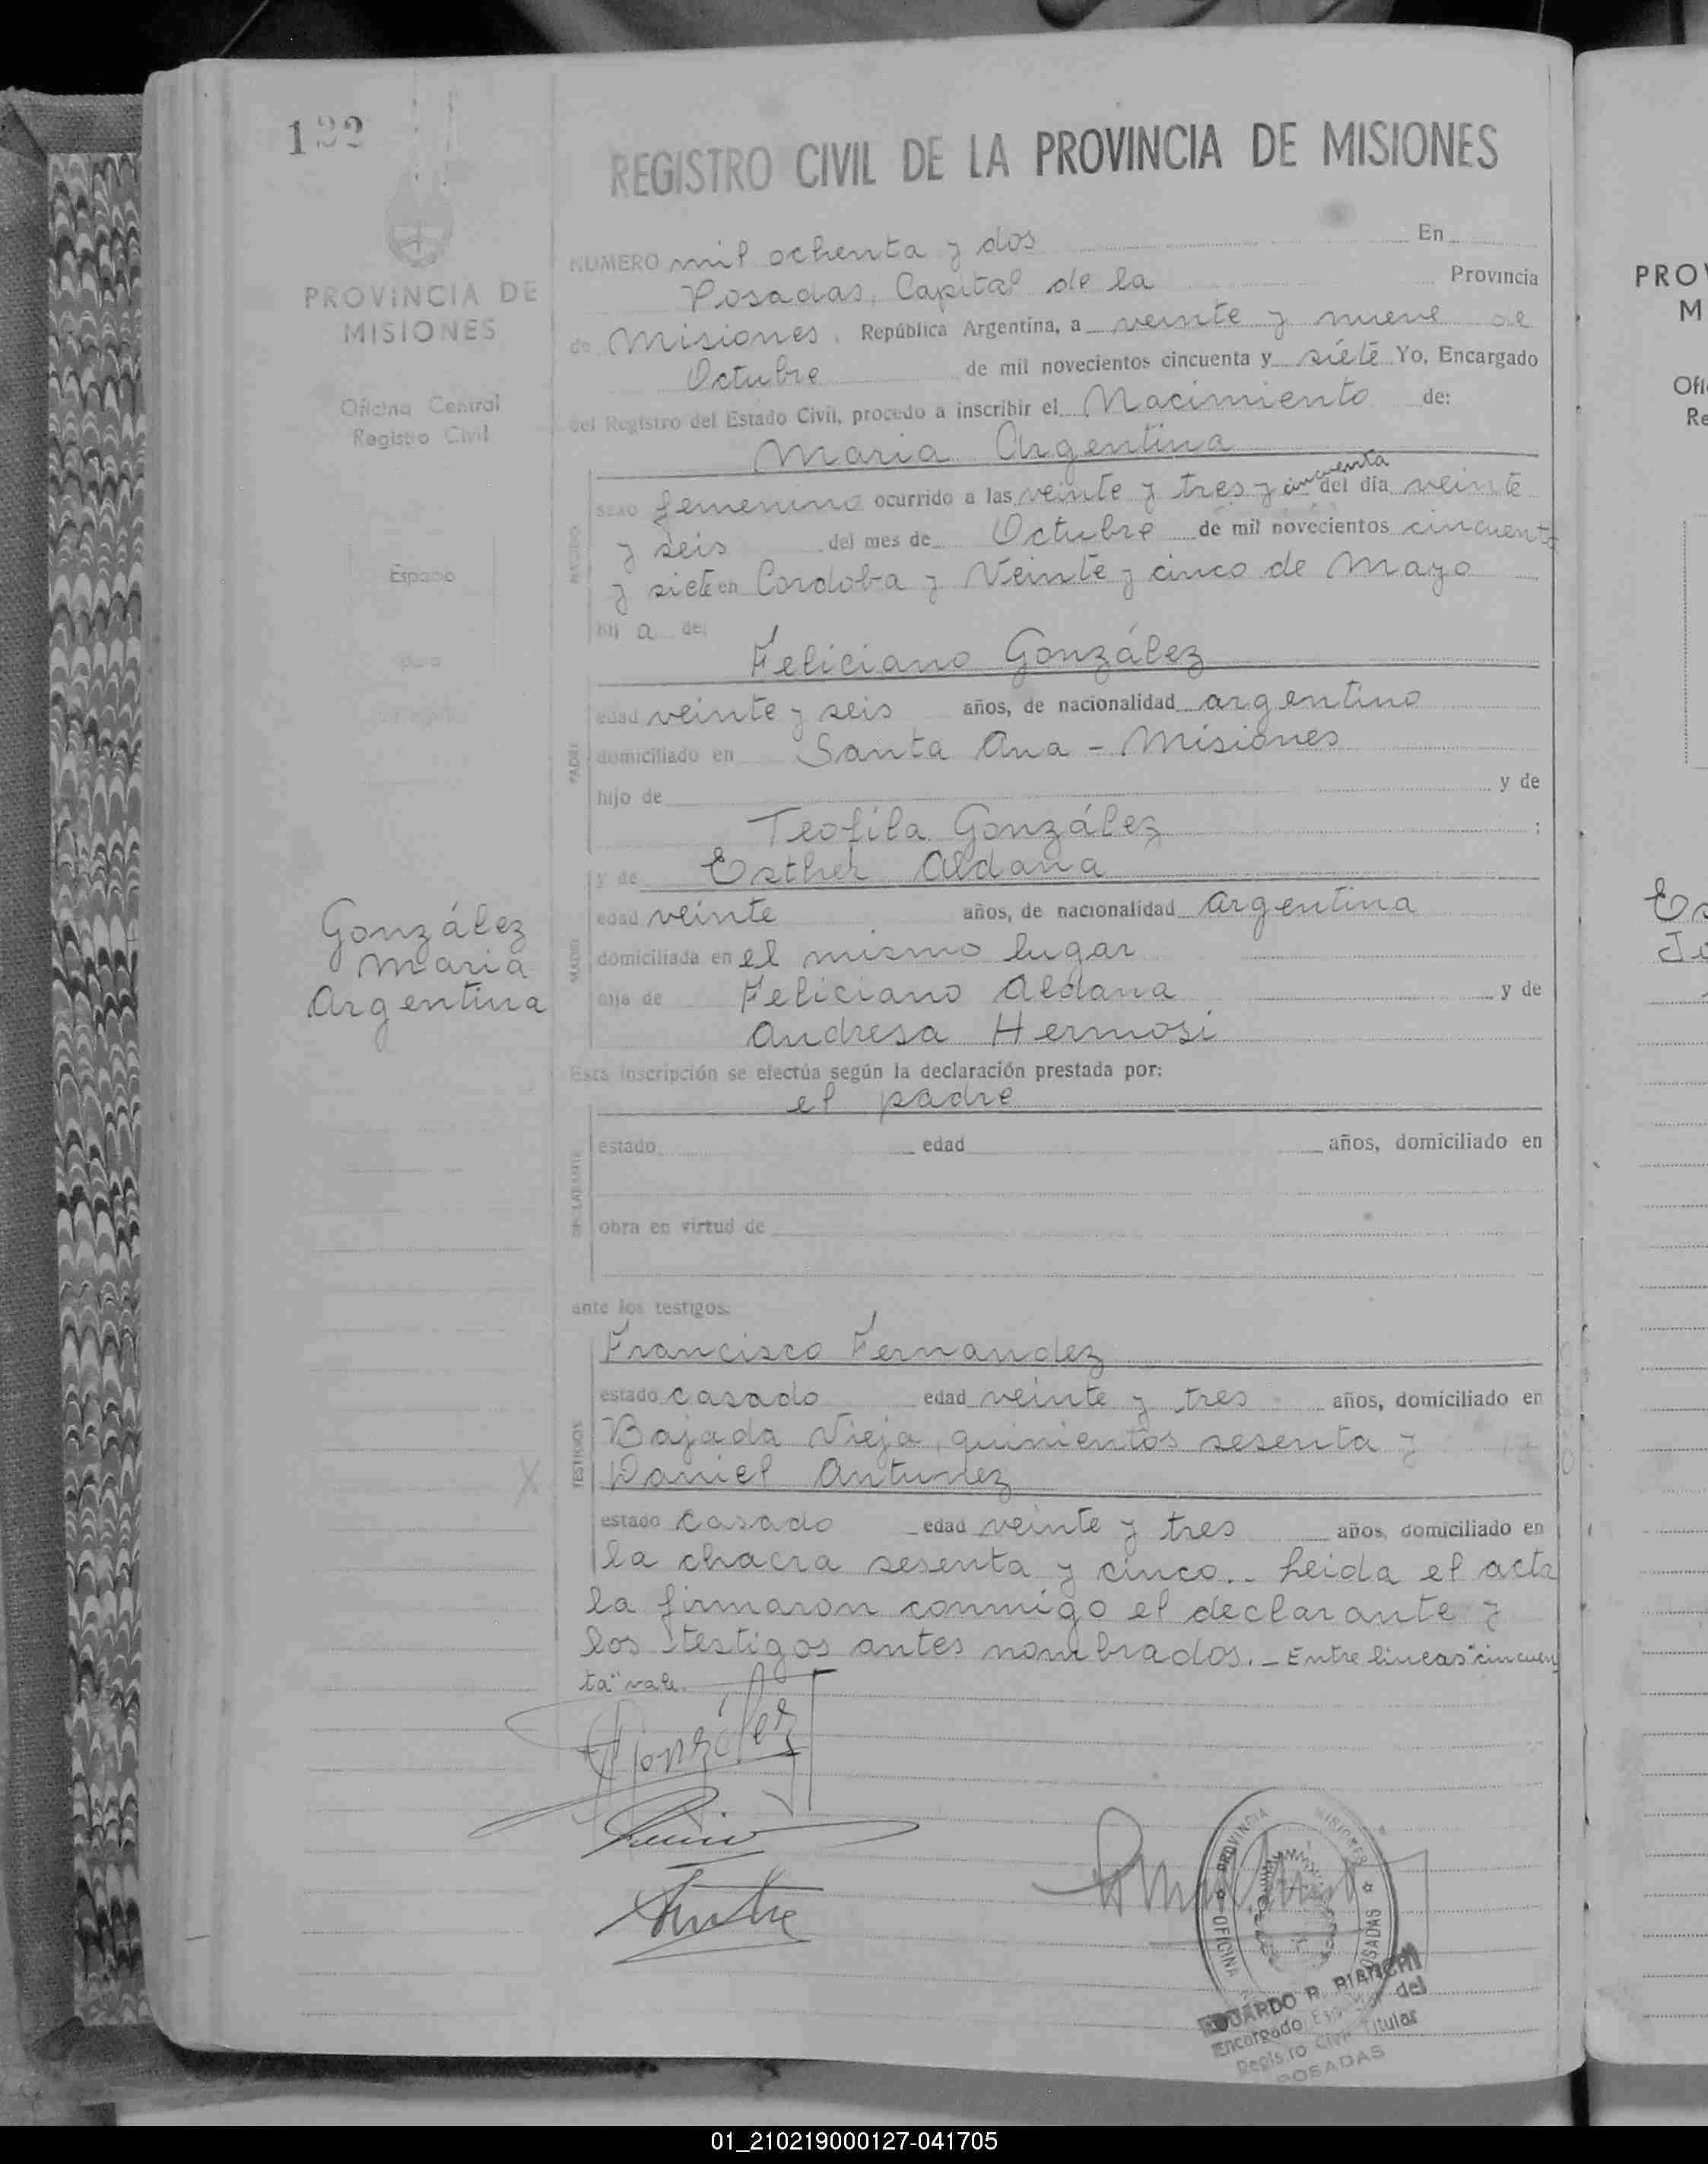 132
PROVINCIA DE
MISIONES
Oficina Central
Registro Civil
Espacio
para
González
Maria
Argentina
REGISTRO CIVIL DE LA PROVINCIA DE MISIONES
NUMERO mil ochenta y dos En
Posadas, Capital de la Provincia
de Misiones, República Argentina, a veinte y nueve de
Octubre de mil novecientos cincuenta y siete Yo, Encargado
del Registro del Estado Civil, procedo a inscribir el Nacimiento de:
Maria Argentina
cincuenta
sexo femenino ocurrido a las veinte y tres y del día veinte
y seis del mes de Octubre de mil novecientos cincuenta
y siete en Cordoba y Veinte y cinco de Mayo
hij a de:
Feliciano González
edad veinte y seis años, de nacionalidad argentino
domiciliado en Santa Ana - Misiones
hijo de y de
Teofila González ;
y de Esther Aldana
edad veinte años, de nacionalidad argentina
domiciliada en el mismo lugar
hija de Feliciano Aldana y de
Andresa Hermosi
Esta inscripción se efectúa según la declaración prestada por:
el padre
estado edad años, domiciliado en
obra en virtud de
ante los testigos:
Francisco Fernandez
estado casado edad veinte y tres años, domiciliado en
Bajada Vieja, quinientos sesenta y
Daniel Antunez
estado casado edad veinte y tres años, domiciliado en
la chacra sesenta y cinco.- Leida el acta
la firmaron conmigo el declarante y
los testigos antes nombrados.- Entre lineas "cincuen
ta" vale.
NACIDO
PADRE
MADRE
DECLARANTE
TESTIGOS
González
PROVINCIA MISIONES
OFICINA POSADAS
EDUARDO R. BIANCHI
Encargado del
Registro Civil Titular
POSADAS
PROV
M
Ofi
Re
Es
01_210219000127-041705